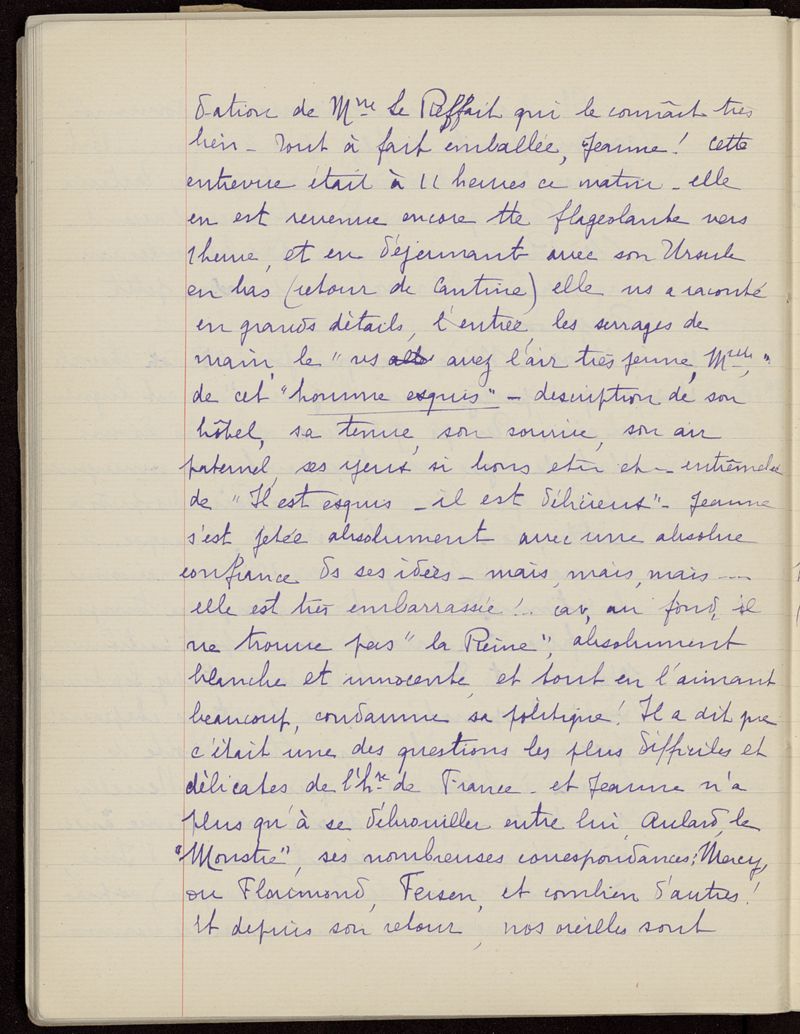 dation de Mme Le Reffait qui le connaît très
bien - Tout à fait emballée, Jeanne ! cette
entrevue était à 11 heures ce matin - elle
en est revenue encore tte flageolante vers
1 heure, et en déjeunant avec son Ursule
en bas (retour de Cantine) elle ns a raconté
en grands détails, l'entrée, les serrages de
main, le "vs avez l'air très jeune, Melle,"
de cet "homme esquis" - description de son
hôtel, sa tenue, son sourire, son air
paternel, ses yeux si bons etc etc - entremêlée
de "Il est esquis - il est délicieux" - Jeanne
s'est jetée absolument avec une absolue
confiance ds ses idées - mais, mais, mais ---
elle est très embarrassée !.. car, au fond, il
ne trouve pas "la Reine", absolument
blanche et innocente, et tout en l'aimant
beaucoup, condamne sa politique ! Il a dit que
c'était une des questions les plus difficiles et
délicates de l'hre de France - et Jeanne n'a
plus qu'à se débrouiller entre lui, Aulard, le
"Monstre", ses nombreuses correspondances : Mercy,
ou Florimond, Fersen, et combien d'autres !
Et depuis son retour, nos oreilles sont